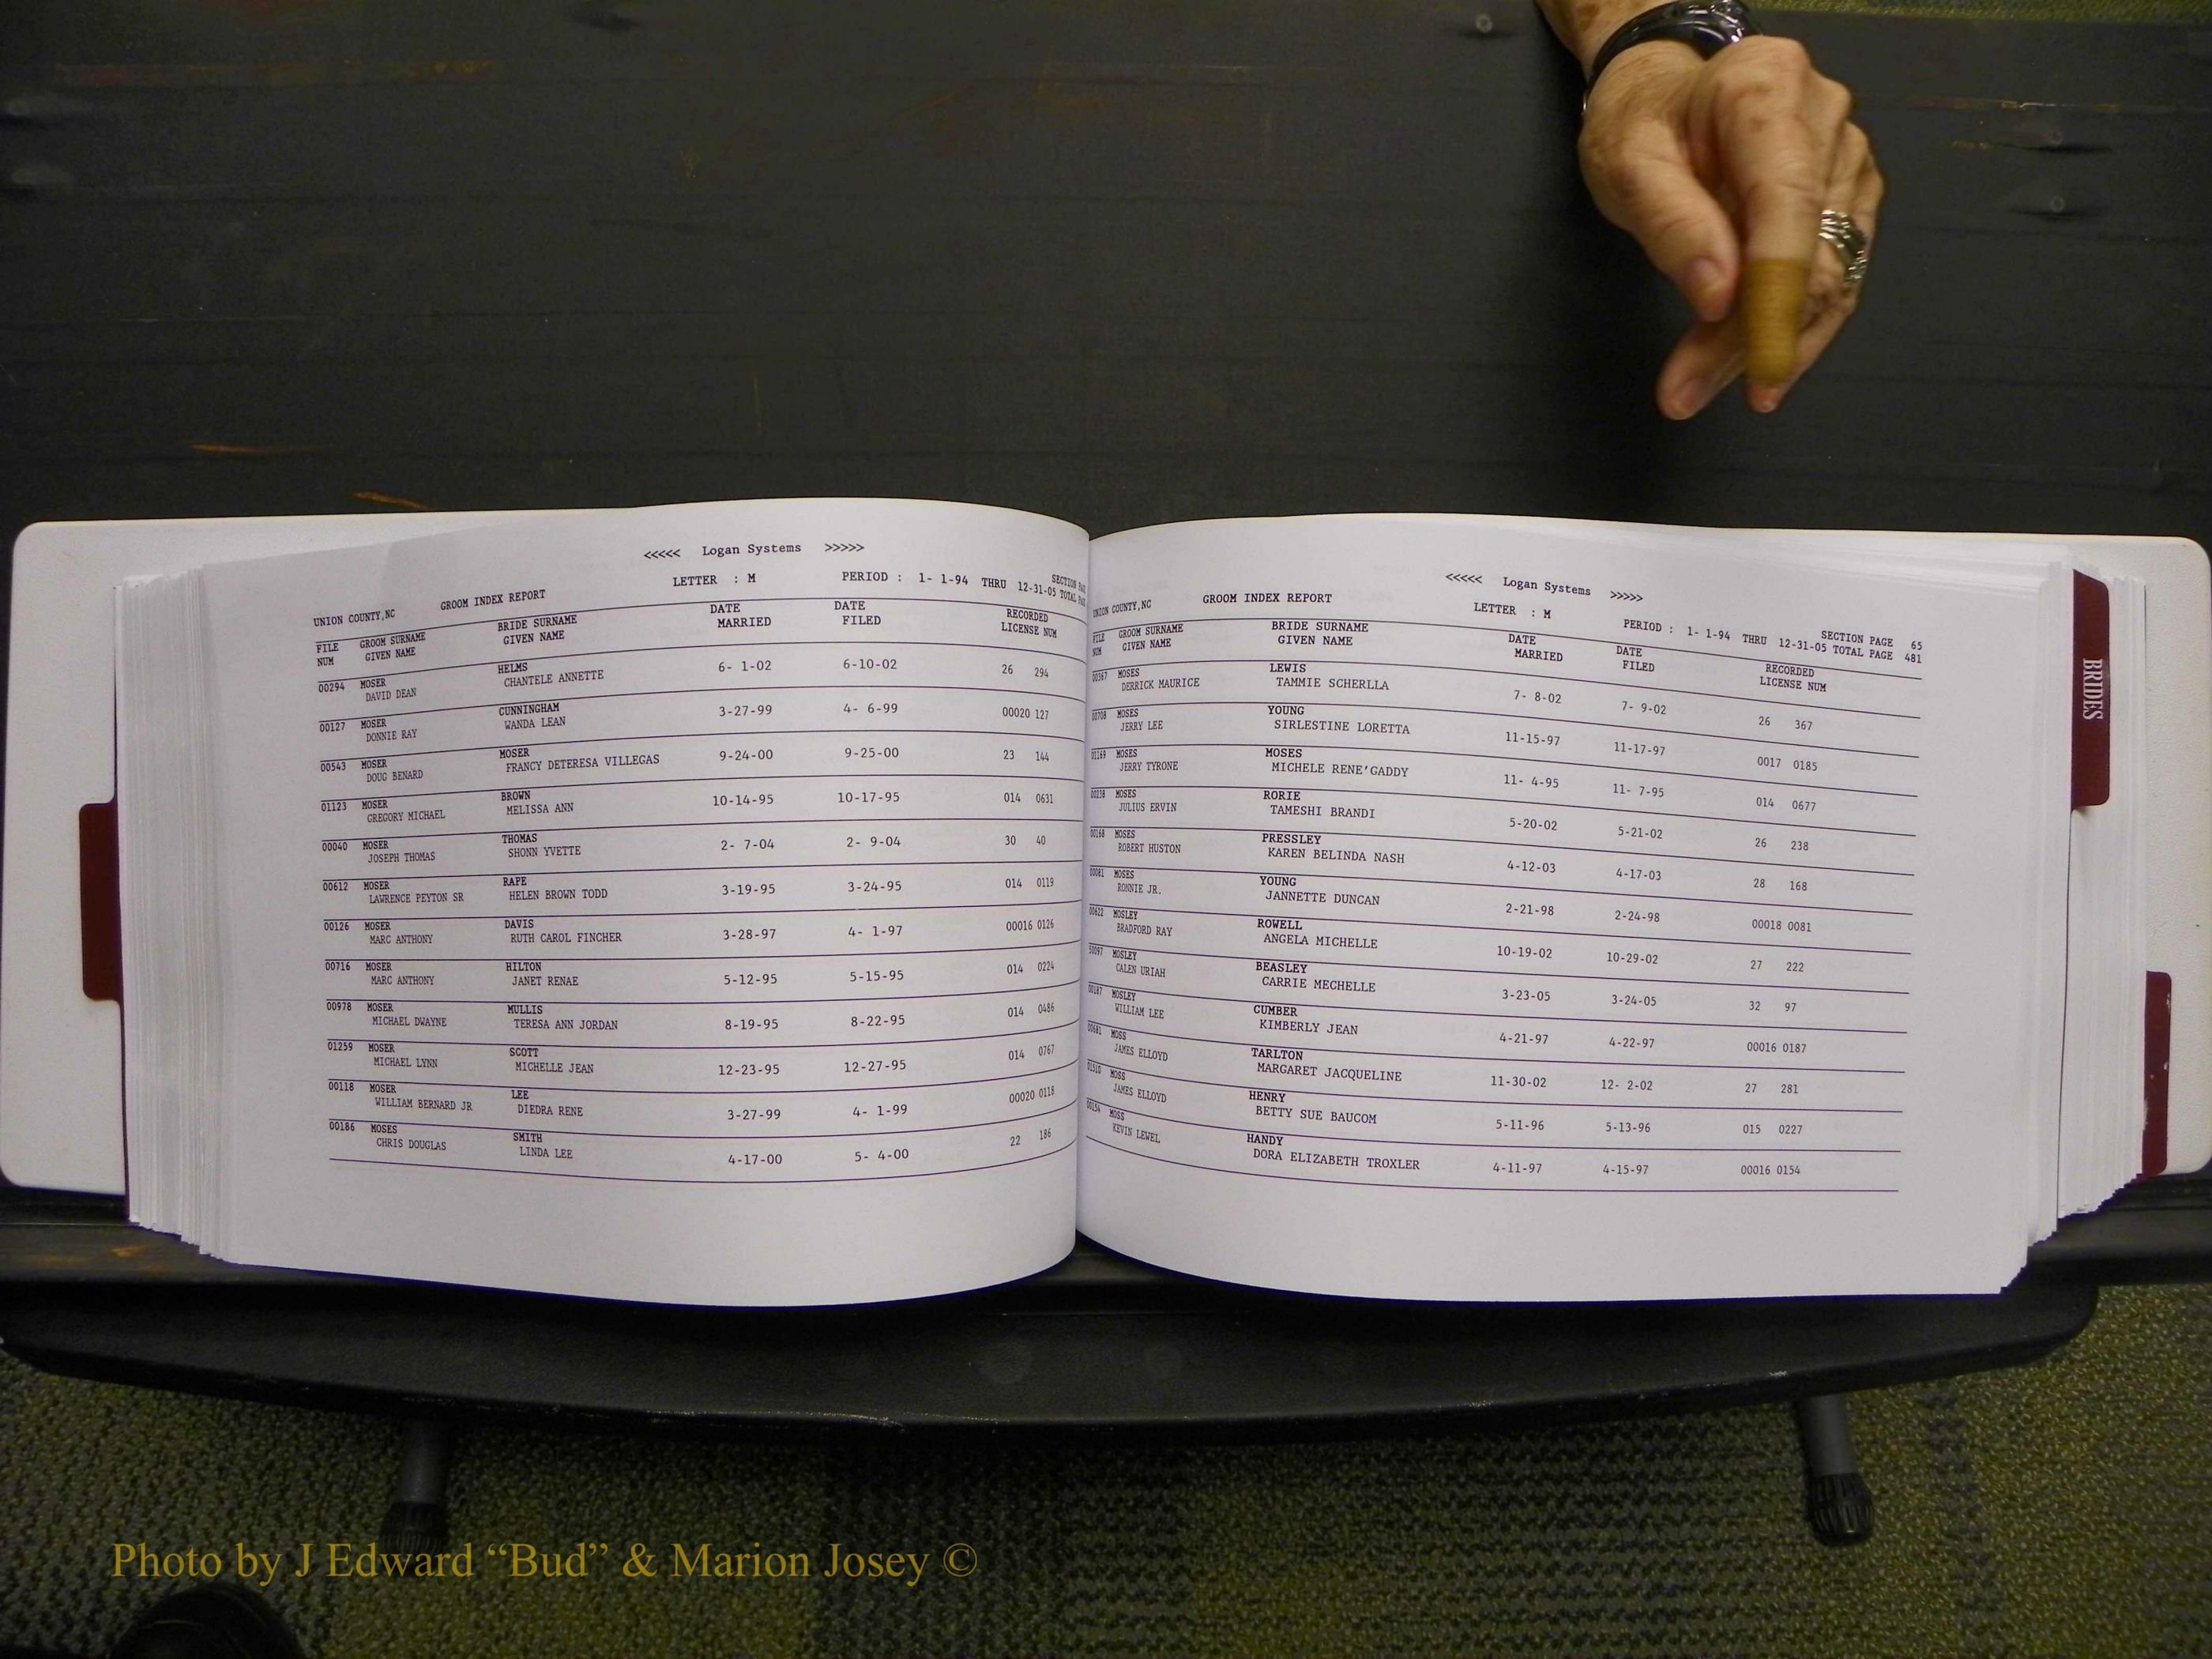 <<<<< Logan Systems >>>>>
LETTER : M PERIOD : 1- 1-94 THRU 12-31-05 SECTION
TOTAL
UNION COUNTY,NC GROOM INDEX REPORT
FILE GROOM SURNAME BRIDE SURNAME DATE DATE RECORDED
NUM GIVEN NAME GIVEN NAME MARRIED FILED LICENSE NUM
00294 MOSER HELMS 6- 1-02 6-10-02 26 294
DAVID DEAN CHANTELE ANNETTE
00127 MOSER CUNNINGHAM 3-27-99 4- 6-99 00020 127
DONNIE RAY WANDA LEAN
00543 MOSER MOSER 9-24-00 9-25-00 23 144
DOUG BENARD FRANCY DETERESA VILLEGAS
01123 MOSER BROWN 10-14-95 10-17-95 014 0631
GREGORY MICHAEL MELISSA ANN
00040 MOSER THOMAS 2- 7-04 2- 9-04 30 40
JOSEPH THOMAS SHONN YVETTE
00612 MOSER RAPE 3-19-95 3-24-95 014 0119
LAWRENCE PEYTON SR HELEN BROWN TODD
00126 MOSER DAVIS 3-28-97 4- 1-97 00016 0126
MARC ANTHONY RUTH CAROL FINCHER
00716 MOSER HILTON 5-12-95 5-15-95 014 0224
MARC ANTHONY JANET RENAE
00978 MOSER MULLIS 8-19-95 8-22-95 014 0486
MICHAEL DWAYNE TERESA ANN JORDAN
01259 MOSER SCOTT 12-23-95 12-27-95 014 0767
MICHAEL LYNN MICHELLE JEAN
00118 MOSER LEE 3-27-99 4- 1-99 00020 0118
WILLIAM BERNARD JR DIEDRA RENE
00186 MOSES SMITH 4-17-00 5- 4-00 22 186
CHRIS DOUGLAS LINDA LEE
<<<<< Logan Systems >>>>>
LETTER : M PERIOD : 1- 1-94 THRU 12-31-05 SECTION PAGE 65
TOTAL PAGE 481
UNION COUNTY,NC GROOM INDEX REPORT
FILE GROOM SURNAME BRIDE SURNAME DATE DATE RECORDED
NUM GIVEN NAME GIVEN NAME MARRIED FILED LICENSE NUM
00367 MOSES LEWIS 7- 8-02 7- 9-02 26 367
DERRICK MAURICE TAMMIE SCHERLLA
00708 MOSES YOUNG 11-15-97 11-17-97 0017 0185
JERRY LEE SIRLESTINE LORETTA
01169 MOSES MOSES 11- 4-95 11- 7-95 014 0677
JERRY TYRONE MICHELE RENE'GADDY
00238 MOSES RORIE 5-20-02 5-21-02 26 238
JULIUS ERVIN TAMESHI BRANDI
00168 MOSES PRESSLEY 4-12-03 4-17-03 28 168
ROBERT HUSTON KAREN BELINDA NASH
00081 MOSES YOUNG 2-21-98 2-24-98 00018 0081
RONNIE JR. JANNETTE DUNCAN
00622 MOSLEY ROWELL 10-19-02 10-29-02 27 222
BRADFORD RAY ANGELA MICHELLE
50097 MOSLEY BEASLEY 3-23-05 3-24-05 32 97
CALEN URIAH CARRIE MECHELLE
00187 MOSLEY CUMBER 4-21-97 4-22-97 00016 0187
WILLIAM LEE KIMBERLY JEAN
00681 MOSS TARLTON 11-30-02 12- 2-02 27 281
JAMES ELLOYD MARGARET JACQUELINE
01510 MOSS HENRY 5-11-96 5-13-96 015 0227
JAMES ELLOYD BETTY SUE BAUCOM
00154 MOSS HANDY 4-11-97 4-15-97 00016 0154
KEVIN LEWEL DORA ELIZABETH TROXLER
BRIDES
Photo by J Edward “Bud” & Marion Josey ©